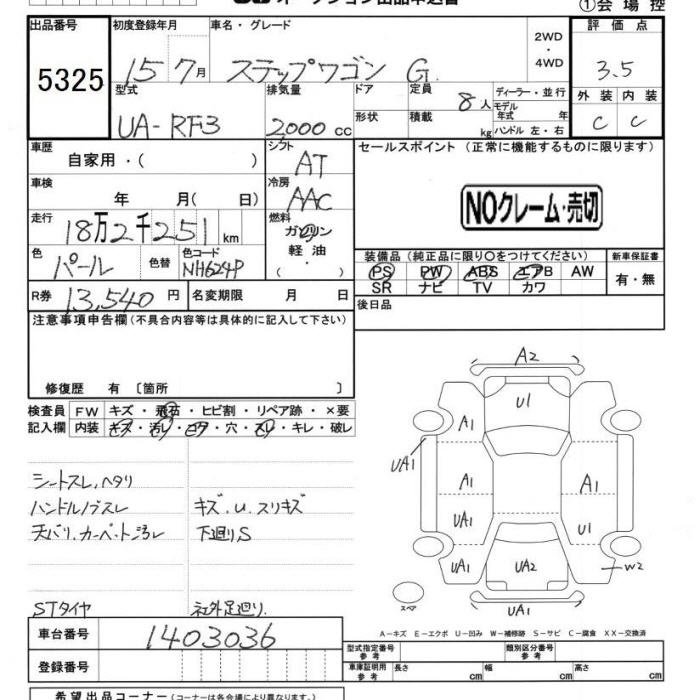 オークション出品申込書
①会場控
出品番号 初度登録年月 車名・グレード 2WD ・ 4WD 評価点
5325 15 7月 ステップワゴン G 3.5
型式 排気量 ドア 定員 8人 ディーラー・並行 外装 内装
UA-RF3 2000cc 形状 積載 kg モデル年式 年 ハンドル 左・右 C C
車歴 自家用・( ) シフト AT セールスポイント (正常に機能するものに限ります)
車検 年 月( 日) 冷房 AAC
NOクレーム・売切
走行 18万2千251km 燃料 ガソリン 軽油 ( ・ )
色 パール 色替 色コード NH624P
装備品 (純正品に限り○をつけてください) 新車保証書
PS PW ABS エアB AW 有・無
SR ナビ TV カワ
R券 13,540円 名変期限 月 日 後日品
注意事項申告欄(不具合内容等は具体的に記入して下さい)
修復歴 有 〔箇所 〕
検査員 FW キズ・飛石・ヒビ割・リペア跡・×要
記入欄 内装 キズ・汚レ・コゲ・穴・スレ・キレ・破レ
シートスレ、ヘタリ
ハンドルノブスレ キズ、U、スリキズ
天バリ、カーペット汚レ 下廻りS
STタイヤ 社外足廻り
A2
U1
A1
UA1
A1 A1
UA1 U1
UA1 UA2 W2
スペア UA1
A-キズ E-エクボ U-凹み W-補修跡 S-サビ C-腐食 XX-交換済
車台番号 1403036
登録番号
型式指定番号 参考 類別区分番号 参考
車庫証明用 参考 長さ cm 幅 cm 高さ cm
希望出品コーナー (コーナーは各会場により異なります。)